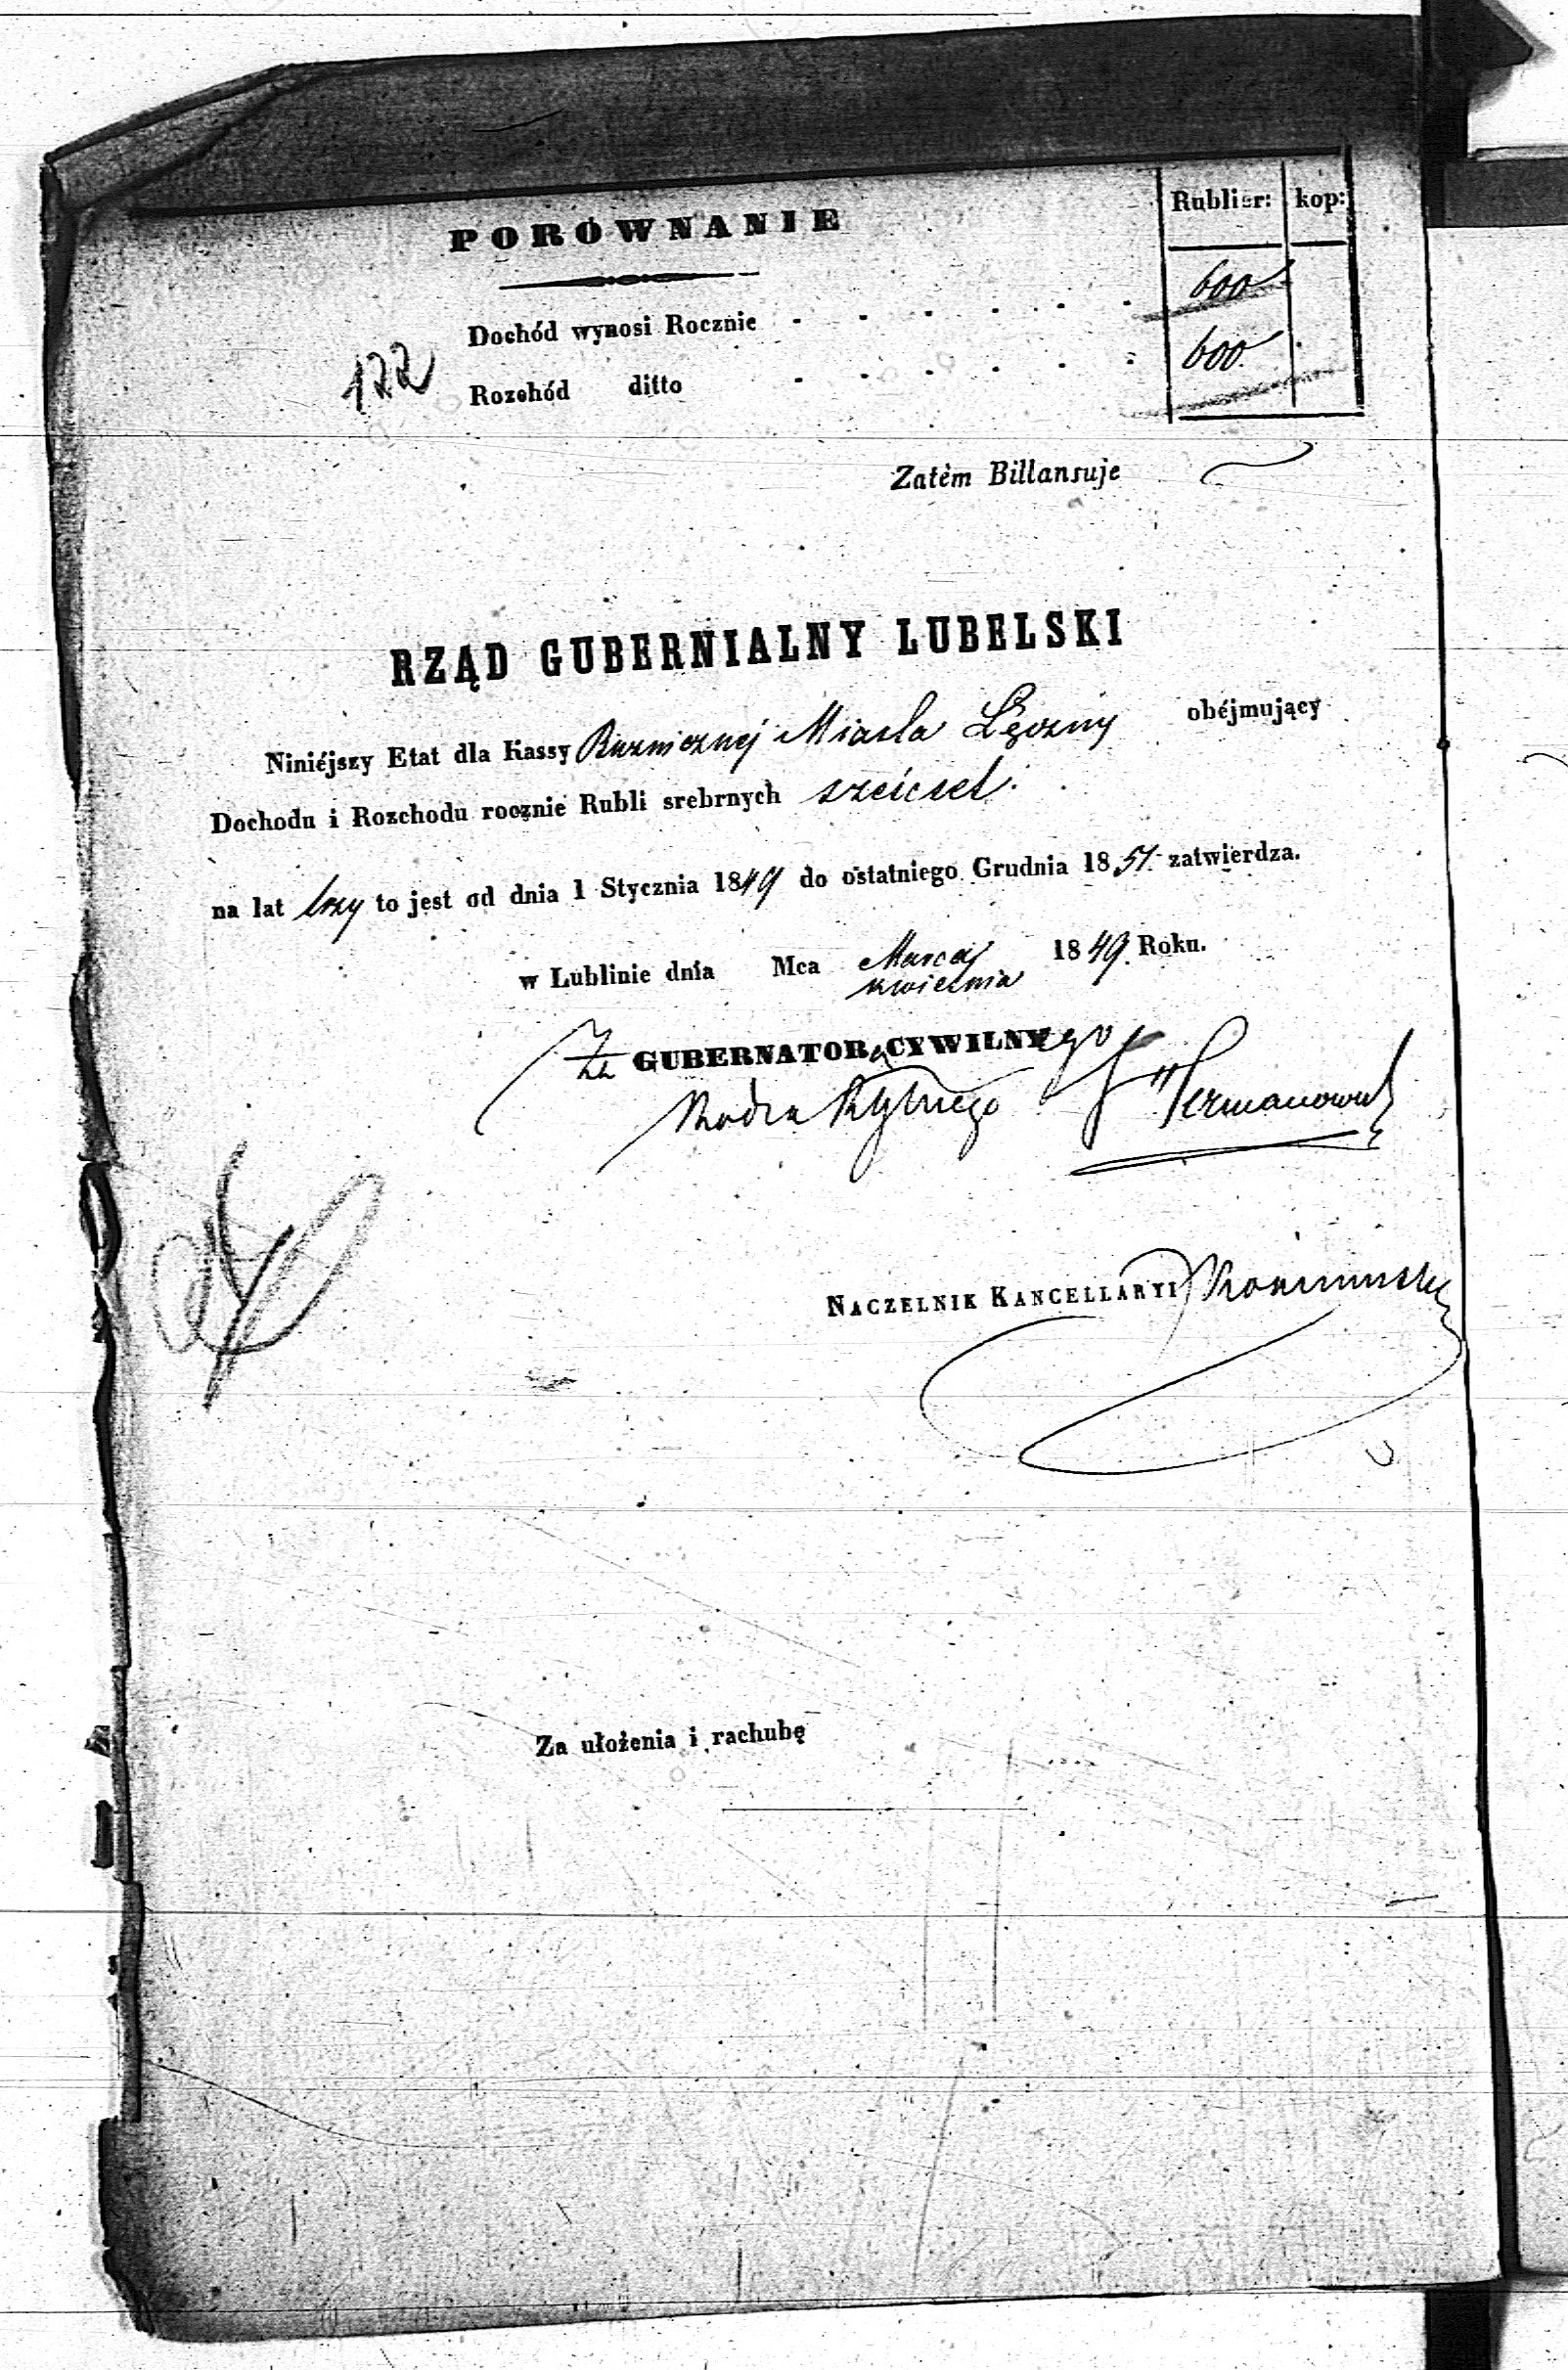 PORÓWNANIE
Rublisr: kop:
Dochód wynosi Rocznie 600
122
Rozchód ditto 600.
Zatém Billansuje
RZĄD GUBERNIALNY LUBELSKI
Niniéjszy Etat dla Kassy Bużnicznej Miasta Łęczny obéjmujący
Dochodu i Rozchodu rocznie Rubli srebrnych sześćset.
na lat trzy to jest od dnia 1 Stycznia 1849 do ostatniego Grudnia 1851. zatwierdza.
w Lublinie dnia Mca Marca 1849. Roku.
kwietnia
Za GUBERNATORA CYWILNYego
Radca
NACZELNIK KANCELLARYI
Za ułożenia i rachubę